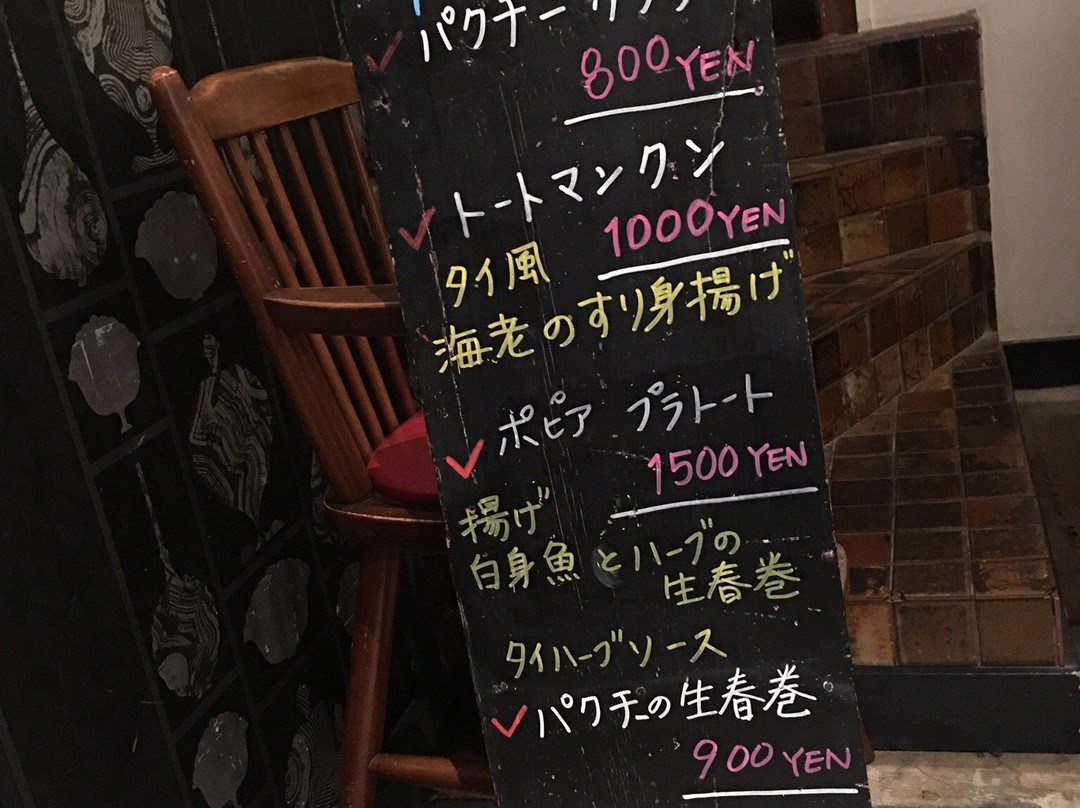 パクチー
800 YEN
トートマンクン
1000 YEN
タイ風
海老のすり身揚げ
ポピア プラトート
1500 YEN
揚げ
白身魚とハーブの
生春巻
タイハーブソース
パクチーの生春巻
900 YEN